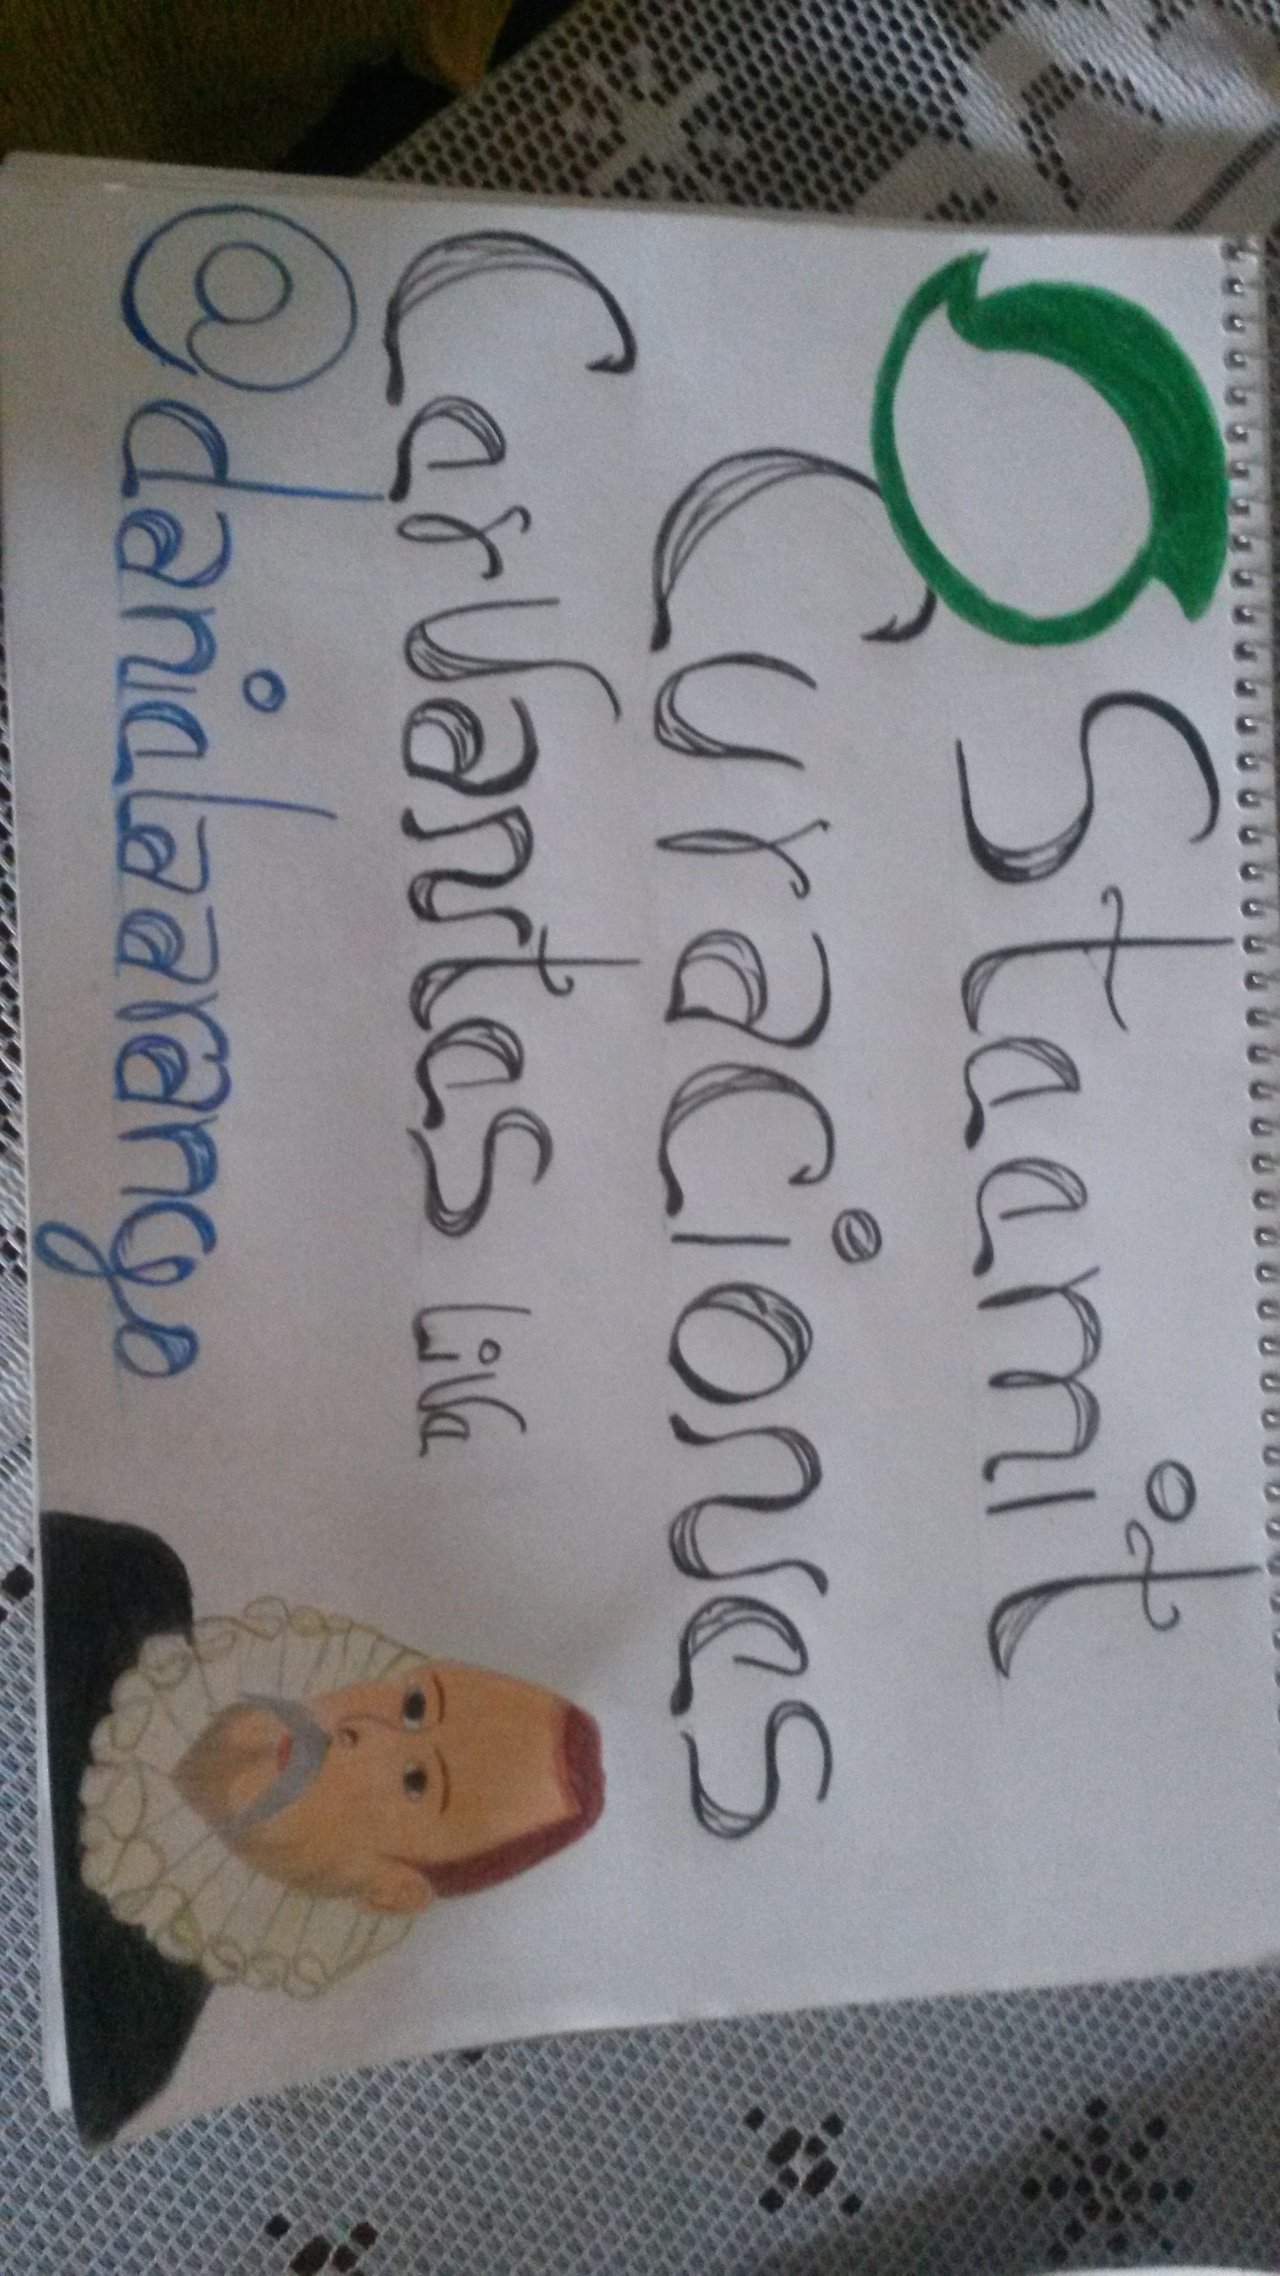 Steemit
Curaciones
Cervantes Live
@danielaarango